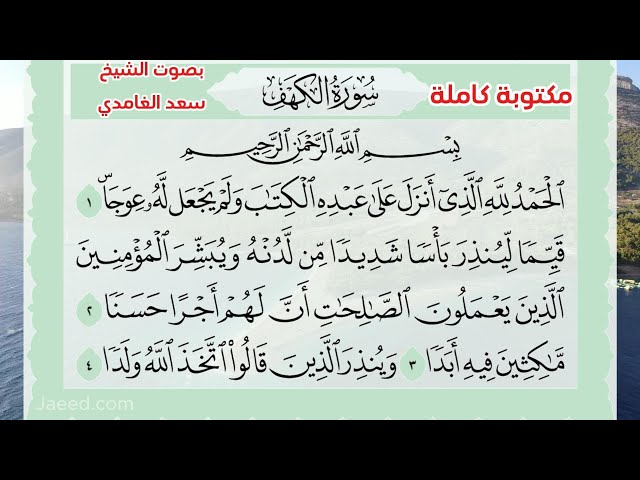 بصوت الشيخ
سعد الغامدي
سُورَةُ الكَهْفِ
مكتوبة كاملة
بِسْمِ ٱللَّهِ ٱلرَّحْمَٰنِ ٱلرَّحِيمِ
ٱلْحَمْدُ لِلَّهِ ٱلَّذِىٓ أَنزَلَ عَلَىٰ عَبْدِهِ ٱلْكِتَٰبَ وَلَمْ يَجْعَل لَّهُۥ عِوَجَاۜ ١
قَيِّمًا لِّيُنذِرَ بَأْسًا شَدِيدًا مِّن لَّدُنْهُ وَيُبَشِّرَ ٱلْمُؤْمِنِينَ
ٱلَّذِينَ يَعْمَلُونَ ٱلصَّٰلِحَٰتِ أَنَّ لَهُمْ أَجْرًا حَسَنًا ٢
مَّٰكِثِينَ فِيهِ أَبَدًا ٣ وَيُنذِرَ ٱلَّذِينَ قَالُوا۟ ٱتَّخَذَ ٱللَّهُ وَلَدًا ٤
Jaeed.com